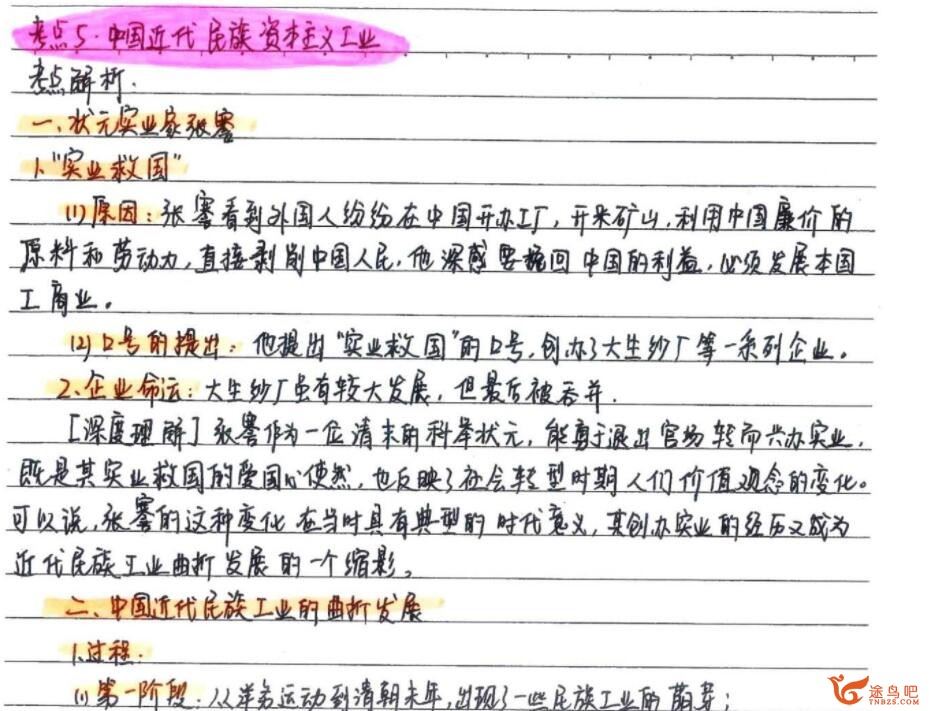 考点5.中国近代民族资本主义工业
考点解析.
一、状元实业家张謇
1."实业救国"
(1)原因:张謇看到外国人纷纷在中国开办工厂,开采矿山,利用中国廉价的
原料和劳动力,直接剥削中国人民,他深感要挽回中国的利益,必须发展本国
工商业。
(2)口号的提出:他提出"实业救国"的口号,创办了大生纱厂等一系列企业。
2.企业命运:大生纱厂虽有较大发展,但最后被吞并.
[深度理解]张謇作为一位清末的科举状元,能勇于退出官场转而兴办实业,
既是其实业救国的爱国心使然,也反映了社会转型时期人们价值观念的变化。
可以说,张謇的这种变化在当时具有典型的时代意义,其创办实业的经历又成为
近代民族工业曲折发展的一个缩影。
二、中国近代民族工业的曲折发展
1.过程.
(1)第一阶段:从洋务运动到清朝末年,出现了一些民族工业的萌芽;
途鸟吧
TNBZS.COM